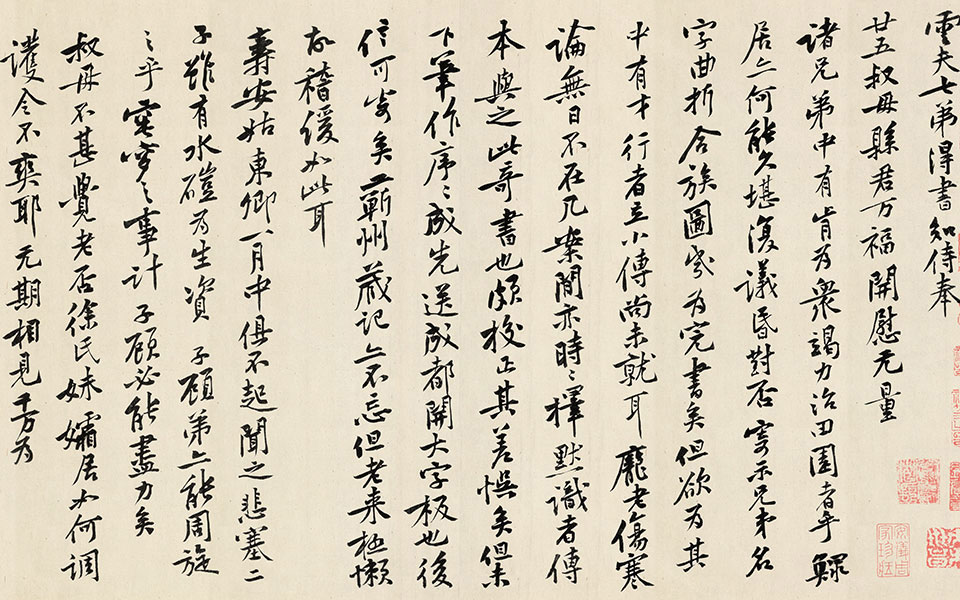 雲夫七弟得書知侍奉
廿五叔母縣君万福開慰无量
諸兄弟中有肯為衆竭力治田園者乎鰥
居亦何能久堪復議昏對否寄示兄弟名
字曲折合族圖幾為完書矣但欲為其
中有才行者立小傳尚未就耳龐老傷寒
論無日不在几案間亦時時擇默識者傳
本與之此奇書也頗校正其差悮矣但未
下筆作序序成先送成都開大字板也後
信可寄矣蘄州藏記亦不忘但老来極懶
故稽緩如此耳
壽安姑東卿一月中俱不起聞之悲塞二
子雖有水磑為生資子顧弟亦能周旋
之乎窀穸之事計子顧必能盡力矣
叔母不甚覺老否徐氏妹孀居如何調
護令不爽耶元期相見千万為